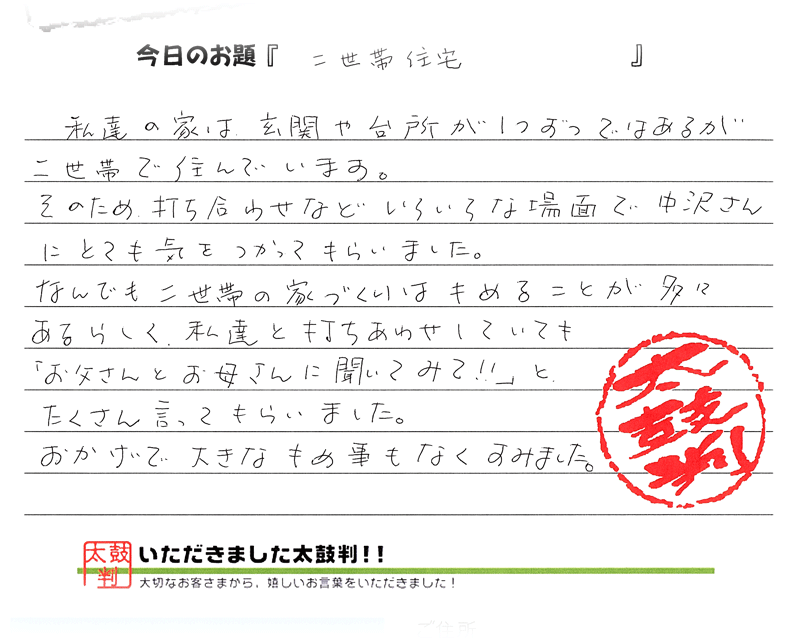 今日のお題『 二世帯住宅 』
私達の家は、玄関や台所が1つずつではあるが
二世帯で住んでいます。
そのため、打ち合わせなどいろいろな場面で中沢さん
にとても気をつかってもらいました。
なんでも二世帯の家づくりはモめることが多々
あるらしく、私達と打ちあわせしていても
「お父さんとお母さんに聞いてみて!!」と、
たくさん言ってもらいました。
おかげで大きなもめ事もなくすみました。
太鼓判
太鼓判
いただきました太鼓判!!
大切なお客さまから、嬉しいお言葉をいただきました!